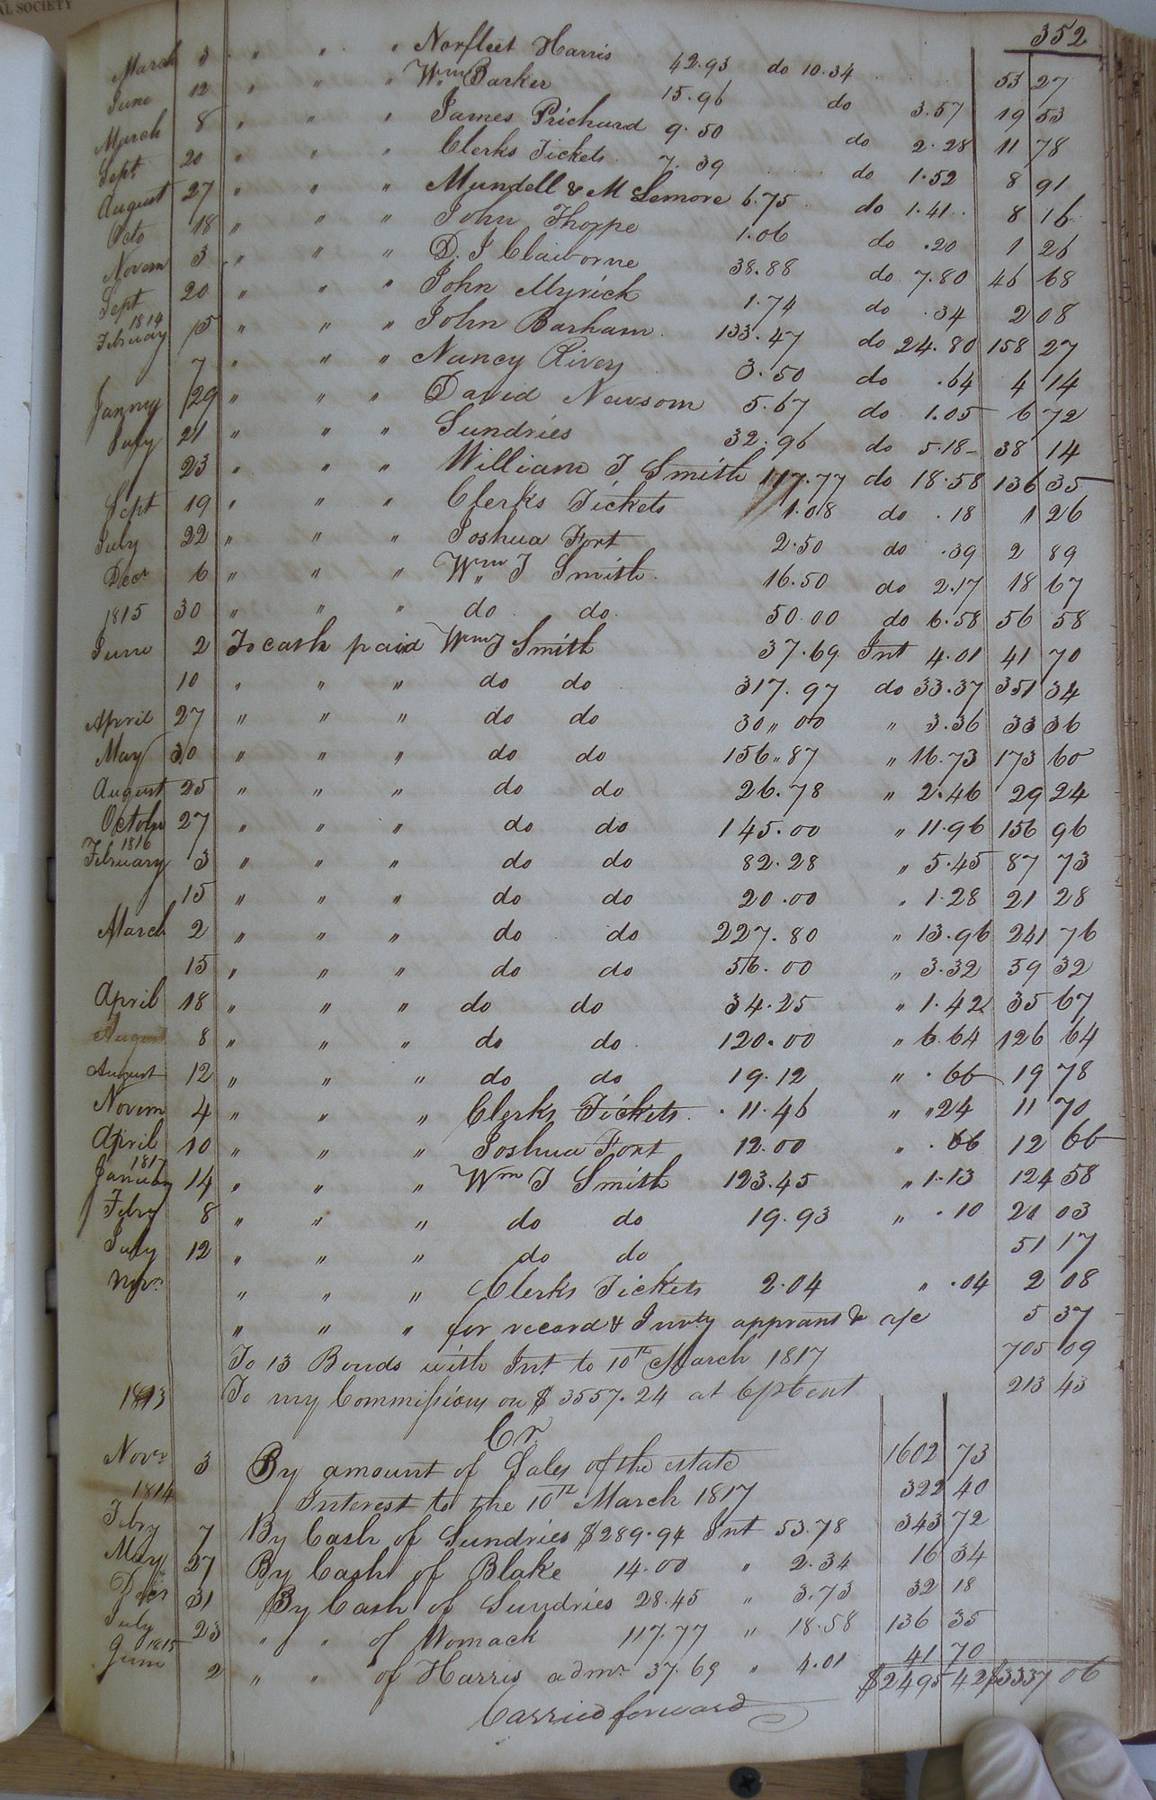 AL SOCIETY
352
March 3 " " " Norfleet Harris 42.93 do 10.34 53 27
June 12 " " " Wm Barker 15.96 do 3.57 19 53
March 8 " " " James Prichard 9.50 do 2.28 11 78
Sept 20 " " " Clerks Tickets 7.39 do 1.52 8 91
August 27 " " " Mundell & McLemore 6.75 do 1.41 8 16
Octo 18 " " " John Thorpe 1.06 do .20 1 26
Novem 3 " " " D. J Claiborne 38.88 do 7.80 46 68
Sept 20 " " " John Myrick 1.74 do .34 2 08
1814
February 15 " " " John Barham 133.47 do 24.80 158 27
7 " " " Nancy Rives 3.50 do .64 4 14
Janury 29 " " " David Newsom 5.67 do 1.05 6 72
July 21 " " " Sundries 32.96 do 5.18 38 14
23 " " " William J Smith 117.77 do 18.58 136 35
Sept 19 " " " Clerks Tickets 1.08 do .18 1 26
July 22 " " " Joshua Fort 2.50 do .39 2 89
Decr 6 " " " Wm J Smith 16.50 do 2.17 18 67
1815 30 " " " do do 50.00 do 6.58 56 58
June 2 To cash paid Wm J Smith 37.69 Int 4.01 41 70
10 " " " do do 317.97 do 33.37 351 34
April 27 " " " do do 30 " 00 " 3.36 33 36
May 30 " " " do do 156 " 87 " 16.73 173 60
August 25 " " " do do 26.78 " 2.46 29 24
October 27 " " " do do 145.00 " 11.96 156 96
1816
February 3 " " " do do 82.28 " 5.45 87 73
15 " " " do do 20.00 " 1.28 21 28
March 2 " " " do do 227.80 " 13.96 241 76
15 " " " do do 56.00 " 3.32 59 32
April 18 " " " do do 34.25 " 1.42 35 67
August 8 " " " do do 120.00 " 6.64 126 64
August 12 " " " do do 19.12 " .66 19 78
Novem 4 " " " Clerks Tickets 11.46 " " 24 11 70
April 10 " " " Joshua Fort 12.00 " .66 12 66
1817
January 14 " " " Wm J Smith 123.45 " 1.13 124 58
Feby 8 " " " do do 19.93 " .10 20 03
July 12 " " " do do 51 17
" " " Clerks Tickets 2.04 " .04 2 08
" " " for record & Invty apprans & a/c 5 37
To 13 Bonds with Int to 10th March 1817 705 09
1813 To my Commissions on $3557.24 at 6 pCent 213 43
Cr
Novr 3 By amount of Sales of the estate 1602 73
1814 Interest to the 10th March 1817 322 40
Feby 7 By Cash of Sundries $289.94 Int 53.78 343 72
May 27 By Cash of Blake 14.00 " 2.34 16 34
Decr 31 By Cash of Sundries 28.45 " 3.73 32 18
July 23 " " of Womack 117.77 " 18.58 136 35
1815
June 2 " " of Harris admr 37.69 " 4.01 41 70
$2495 42 $3337 06
Carried forward